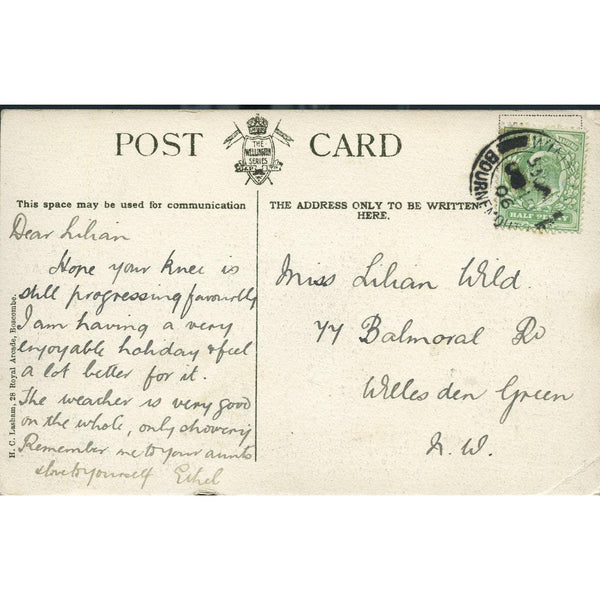 POST CARD
THE
WELLINGTON
SERIES
This space may be used for communication
THE ADDRESS ONLY TO BE WRITTEN
HERE.
HALF PENNY
BOURNEMOUTH
06
Dear Lilian
Hope your knee is
still progressing favourably
I am having a very
enjoyable holiday & feel
a lot better for it.
The weather is very good
on the whole, only showery
Remember me to your aunts
& love to yourself Ethel
Miss Lilian Wild.
77 Balmoral Rd
Willesden Green
N.W.
H. C. Lasham, 28 Royal Arcade, Boscombe.